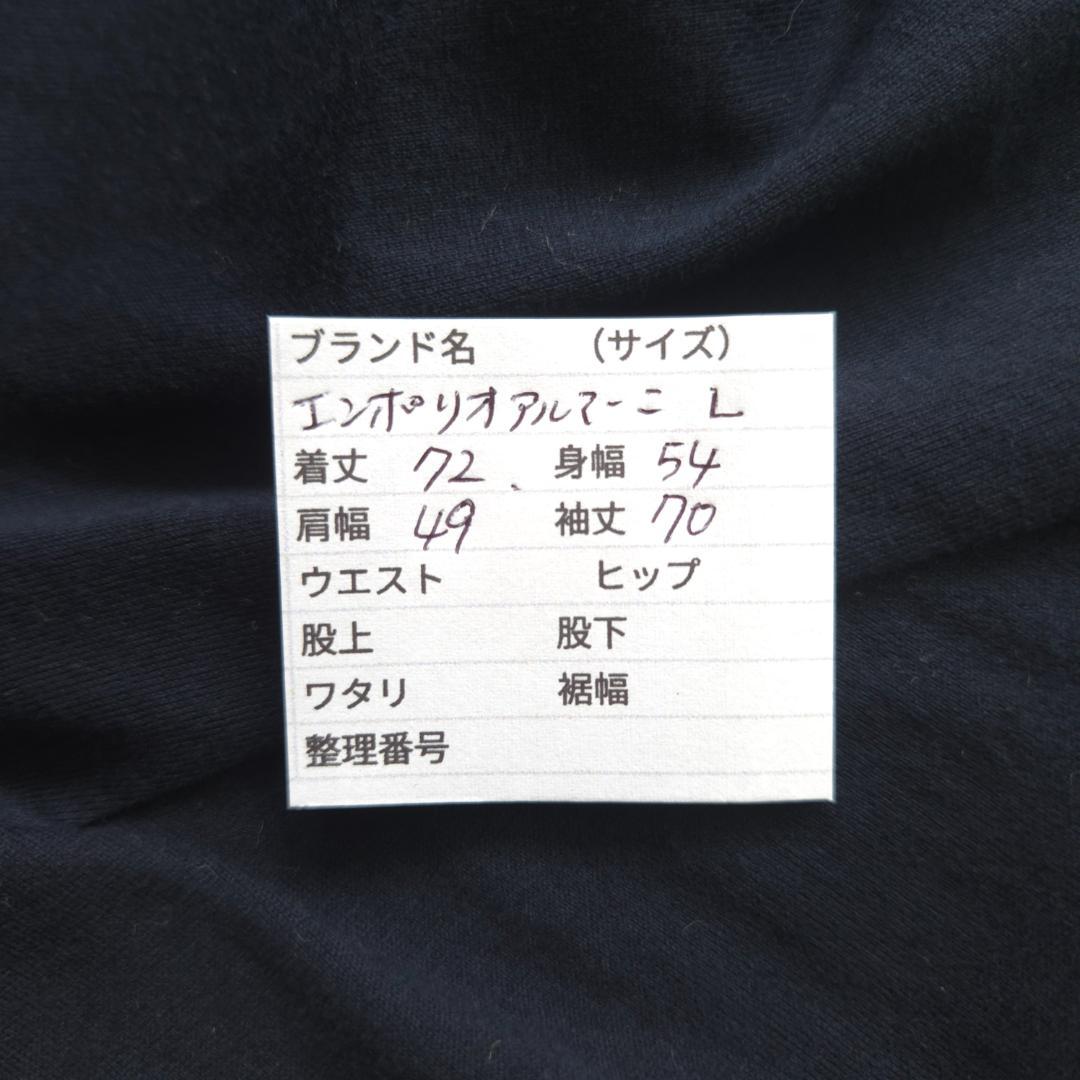 ブランド名 (サイズ)
エンポリオアルマーニ L
着丈 72 身幅 54
肩幅 49 袖丈 70
ウエスト ヒップ
股上 股下
ワタリ 裾幅
整理番号